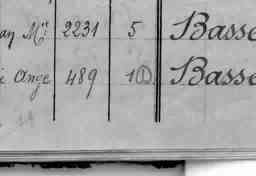 an Mel 2231 5 Basse
e Ange 489 1① Basse